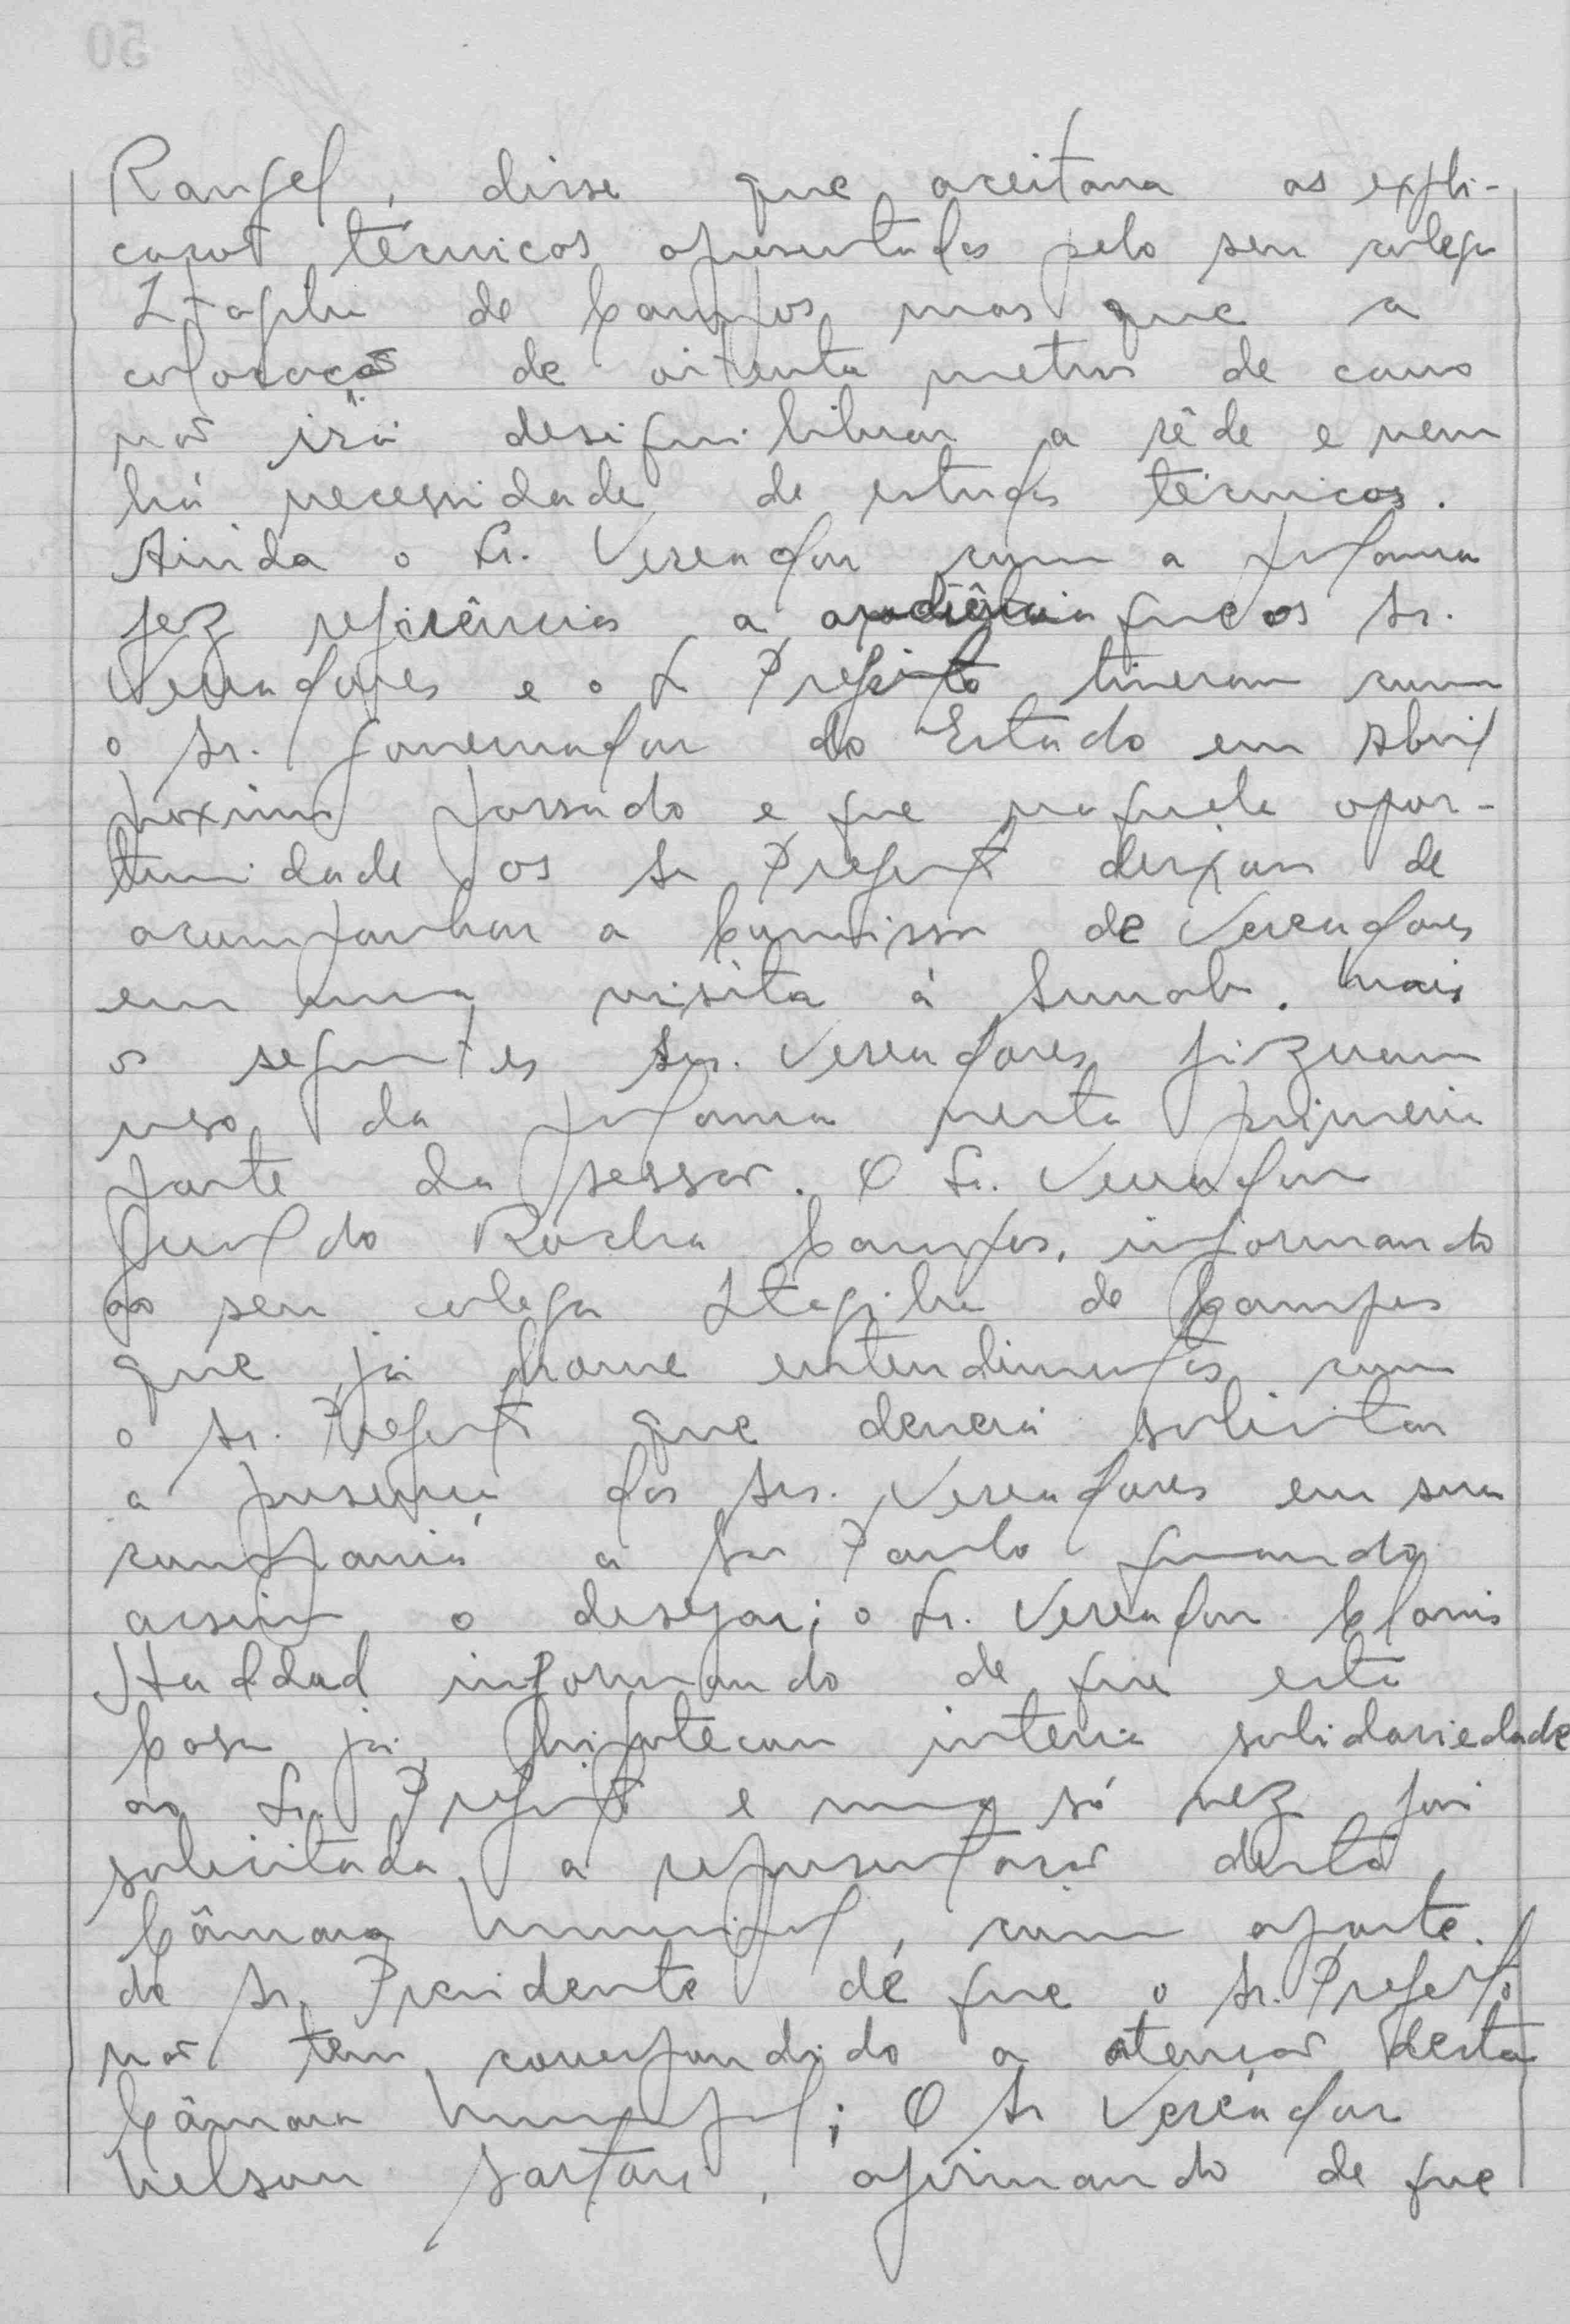 Rangel, disse que aceitava as expli-
cacoes técnicos apresentados pelo seu colega
Itagiba de Campos mas que a
colocação de oitenta metros de cano
não irá desiquilibrar a rêde e nem
há necessidade de estudos técnicos.
Ainda o Sr. Vereador com a palavra
fez referência a audiência que os Sr.
Vereadores e o Sr Prefeito tiveram com
o Sr. Governador do Estado em Abril
próximo passado e que naquela opor-
tunidade os Sr Prefeito deixou de
acompanhar a Comissão de Vereadores
em uma visita á Sunab. Mais
os seguintes Srs. Vereadores fizeram
uso da palavra nesta primeira
parte da sessão. O Sr. Vereador
do Rocha Campos, informando
ao seu colega Itagiba de Campos
que já houve entendimentos com
o Sr. Prefeito que deverá solicitar
a presença dos Srs. Vereadores em sua
companhia a São Paulo quando
assim o desejar; o Sr. Vereador Clovis
Haddad informando de que esta
Casa já hipotecou inteira solidariedade
ao Sr. Prefeito e uma só vez foi
solicitada a representação desta
Câmara Municipal, com aparte
do Sr. Presidente de que o Sr. Prefeito
não tem correspondido a atenção desta
Câmara Municipal; O Sr Vereador
Nelson Sartori, afirmando de que